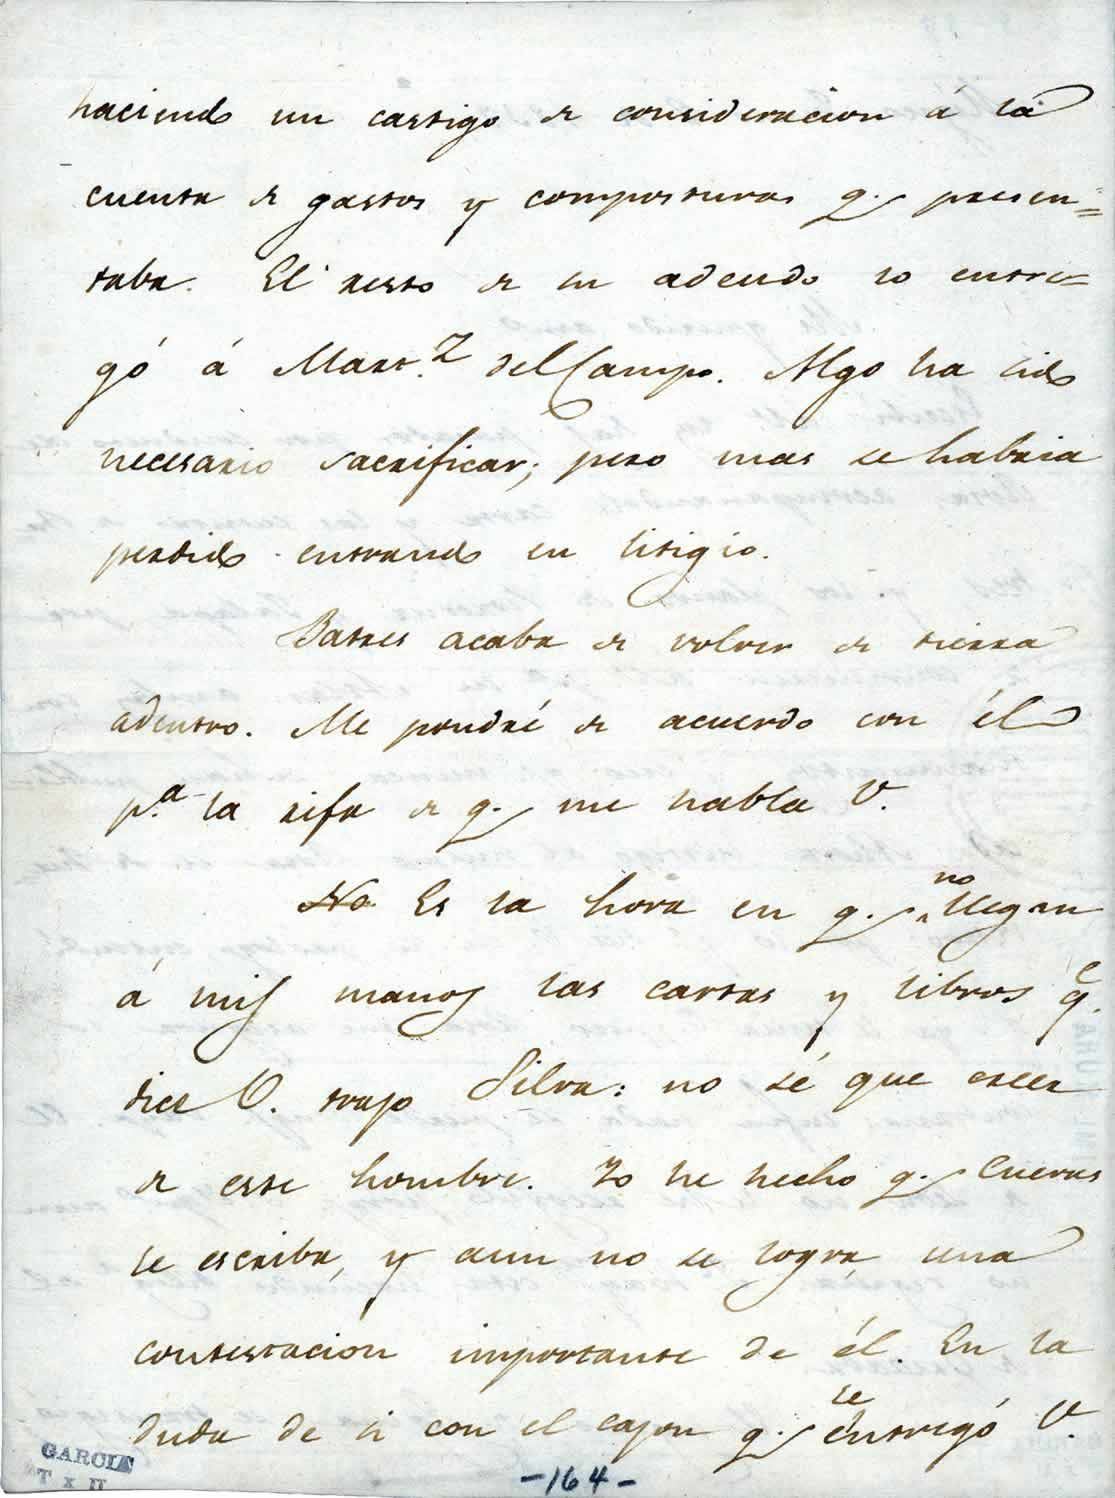 haciendo un castigo de consideracion á la
cuenta de gastos y composturas q. presen=
taba. El resto de su adeudo lo entre=
gó á Mart.z del Campo. Algo ha sido
necesario sacrificar; pero mas se habria
perdido entrando en litigio.
Batres acaba de volver de tierra
adentro. Me pondré de acuerdo con él
p.a la rifa de q. me habla V.
No Es la hora en q. no llegan
á mis manos las cartas y libros q.e
dice V. trajo Silva: no sé que creer
de este hombre. Yo he hecho q. Cuevas
le escriba, y aun no se logra una
contestacion importante de él. En la
duda de si con el cajon q. le entregó V.
GARCIA
T x II
-164-